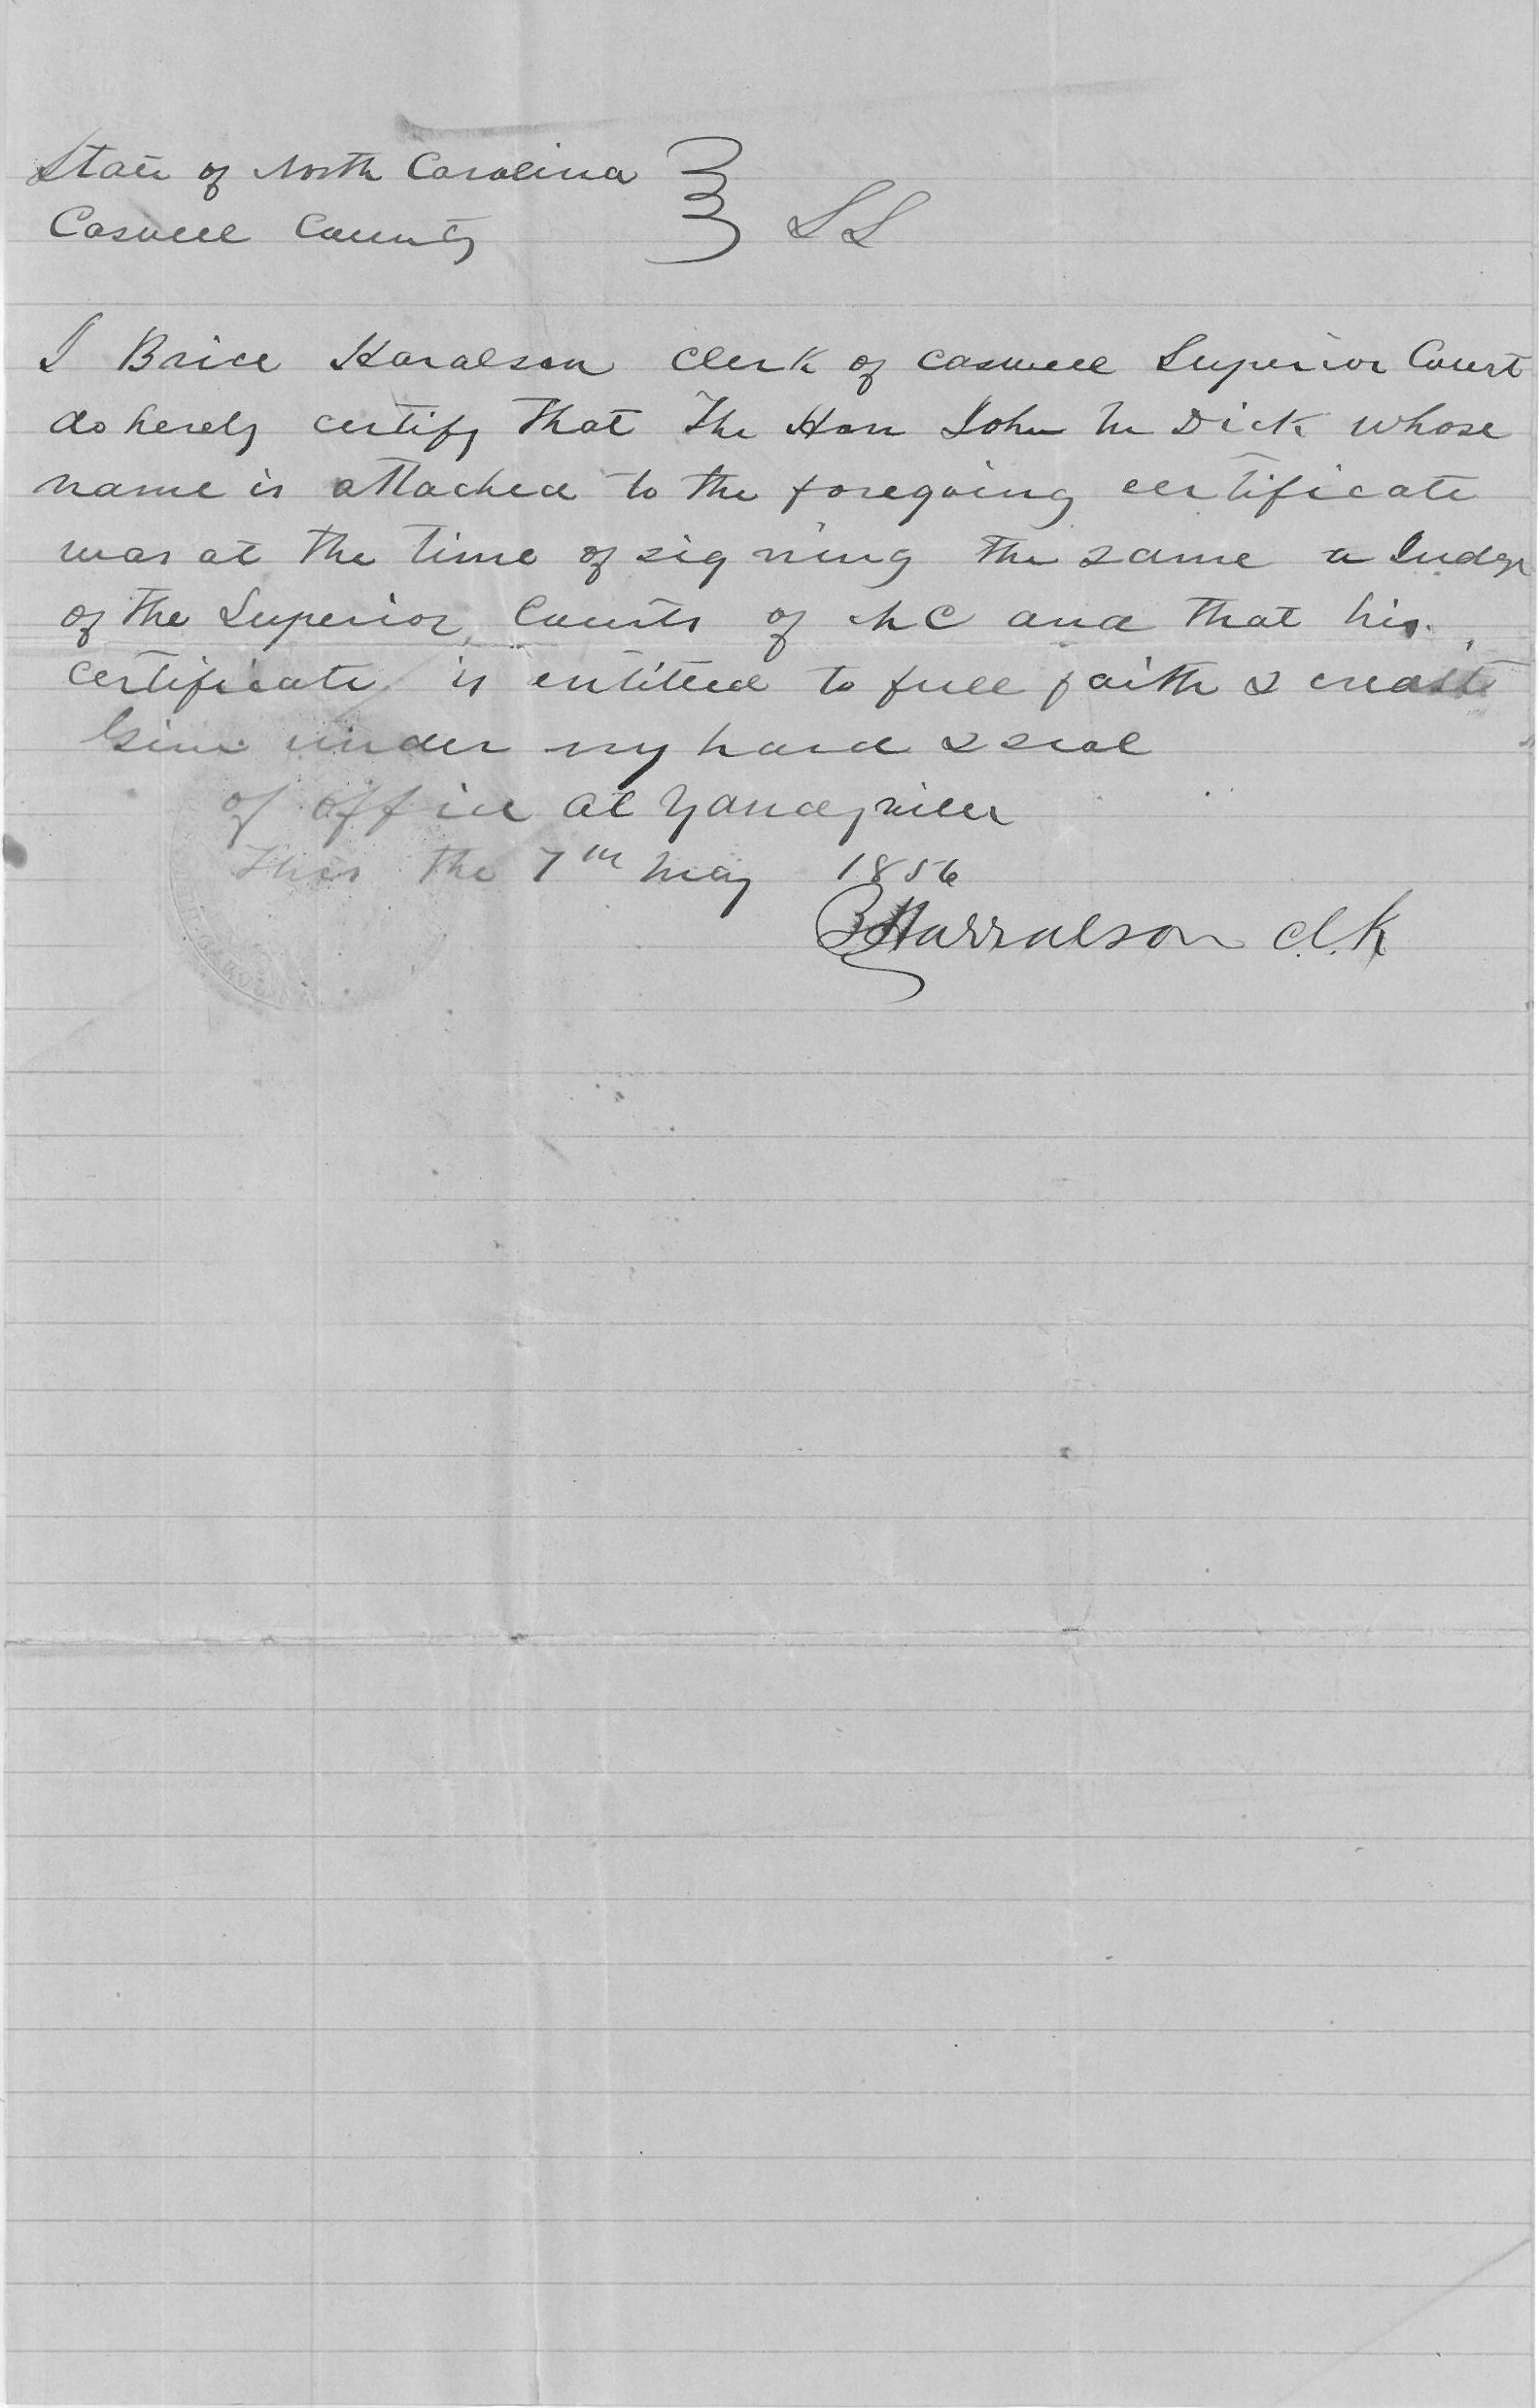 State of North Carolina
Caswell County } SS
I Brice Haralson Clerk of Caswell Superior Court
do herely certify that The Hon John M Dick whose
name is attached to the foregoing certificate
was at the time of signing the same a Judge
of the Superior Courts of NC and that his
certificate is entitled to full faith & credit
Given under my hand & seal
of office at Yanceyville
This the 7th May 1856
B Harralson Clk